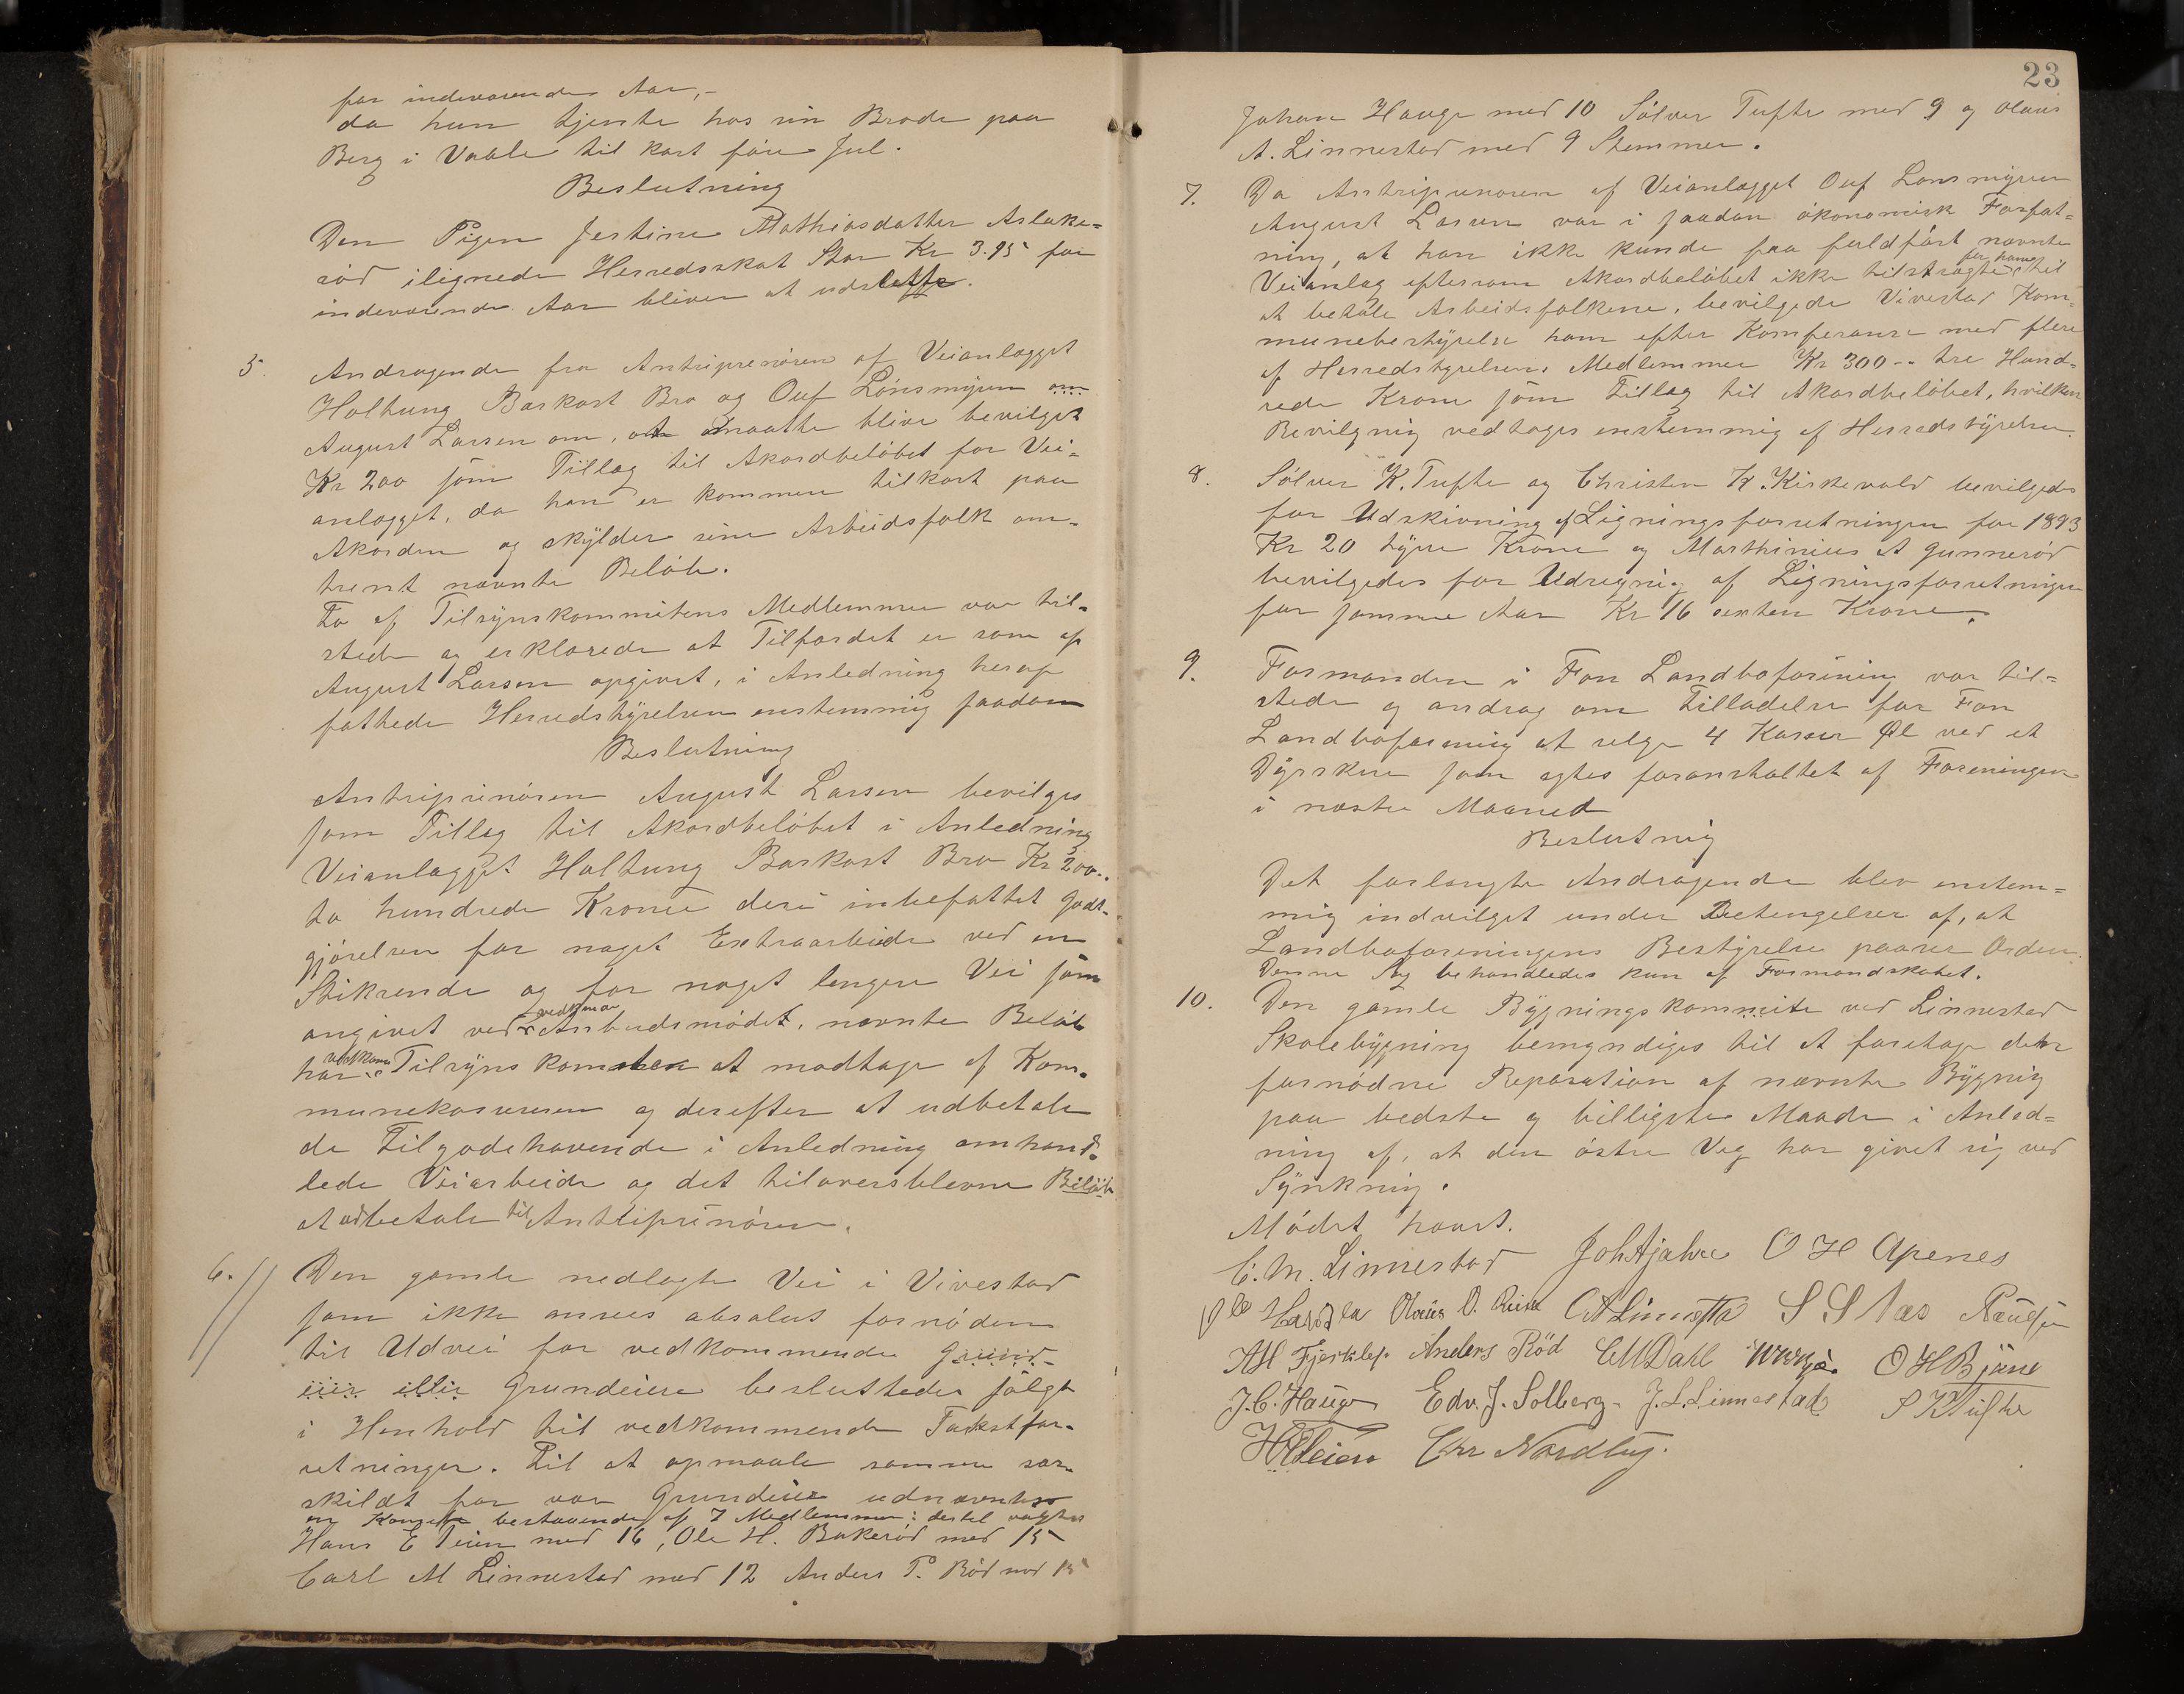 for indeværende Aar,-
da hun tjente hos sin Broder paa
Berg i Vaale til kort före Jul.
Beslutning
Den Pigen Jestine Mathiasdatter Aslake=
röd ilignede Herredsskat Stor Kr 3.95 for
indeværende Aar bliver at udslette.
5. Andragende fra Antriprenören af Veianlægget
Holtung Barkost Bro og Ouf Lönsmyren om
August Larsen om, at maatte blive bevilget
Kr 200 som Tillæg til Akordbelöbet for Vei=
anlægget, da han er kommen tilkort paa
Akorden og skylder sine Arbeidsfolk om-
trent nævnte Belöb.
To af Tilsynskommitens Medlemmer var til-
stede og erklærede at Tilfældet er som af
August Larsen opgivet, i Anledning heraf
fattede Herredstyrelsen enstemmig saadan
Beslutning
Antriprinören August Larsen bevilges
som Tillæg til Akordbelöbet i Anledning
Veianlægget Holtung Barkost Bro Kr 200..
to hundrede Kroner deri inbefattet Godt-
gjörelsen for noget Extraarbeide ved en
Stikrende og for noget lengere Vei som
angivet ved vedkmm Anbudsmödet, nævnte Belöb
har vedkom Tilsyns komiteen at modtage af Kom-
munekassereren og derefter at udbetale
de Tilgodehavende i Anledning omhand-
lede Veiarbeide og det tiloversblevne Belöb
at udbetale til Antriprinören.
6. Den gamle nedlagte Vei i Vivestad
som ikke ansees absolut fornöden
til Udvei for vedkommende Grund-
eier eller Grundeiere besluttedes solgt
i Henhold til vedkommende Takstfor-
retninger. Til at opmaale samme sær-
skildt for vær Grundeier udnævntes
en Komite bestaaende af 7 Medlemmer: dertil valgtes
Hans E Teien med 16, Ole H. Bakeröd med 15
Carl M Linnestad med 12 Anders P. Röd med 15
23
Johan Hauge med 10 Sölver Tufte med 9 og Olaus
A. Linnestad med 9 Stemmer.
7. Da Antriprenören af Veianlægget Ouf Lönsmyren
August Larsen var i saadan ökonomisk Forfat=
ning, at han ikke kunde faa fuldfört nævnte
Veianlæg eftersom Akordbelöbet ikke tilstrægte for ham til
at betale Arbeidsfolkene, bevilgede Vivestad Kom=
munebestyrelse ham efter Komferanse med flere
af Herredstyrelsens Medlemmer Kr 300-- tre Hund=
rede Kroner som Tillæg til Akordbelöbet, hvilken
Bevilgning vedtoges enstemmig af Herredstyrelsen.
8. Sölver K. Tufte og Christen K. Kirkevold bevilgedes
for Udskrivning af Ligningsforretningen for 1893
Kr 20 tyve Kroner og Marthinius A Gunneröd
bevilgedes for Udregning af Ligningsforretningen
for samme Aar Kr 16 sexten Kroner.
9. Formanden i Fon Landboforining var til=
stede og andrag om Tilladelse for Fon
Landboforening at selge 4 Kasser Øl ved et
Dyrskue som agtes foranstaltet af Foreningen
i næste Maaned
Beslutnig
Det forlangte Andragende blev enstem=
mig indvilget under Betengelser af, at
Landboforeningens Bestyrelse paaser Orden.
Denne Sag behandledes kun af Formandskabet.
10. Den gamle Bygningskommite ved Linnestad
Skolebygning bemyndiges til at foretage den
fornödne Reparation af nævnte Bygnig
paa bedste og billigste Maade i Anled=
ning af, at den östre Veg har givet sig ved
Synknig.
Mödet hævet.
C. M. Linnestad Joh Ajahre O H Apenes
Ole Olaus O. Ruse S S Næs
AH Fjerklep Anders Röd CMDahl OHBjune
J. C. Hauge Edv. J. Solberg. J. L. Linnestad S K Tufte
HETeien Chr Nordby.